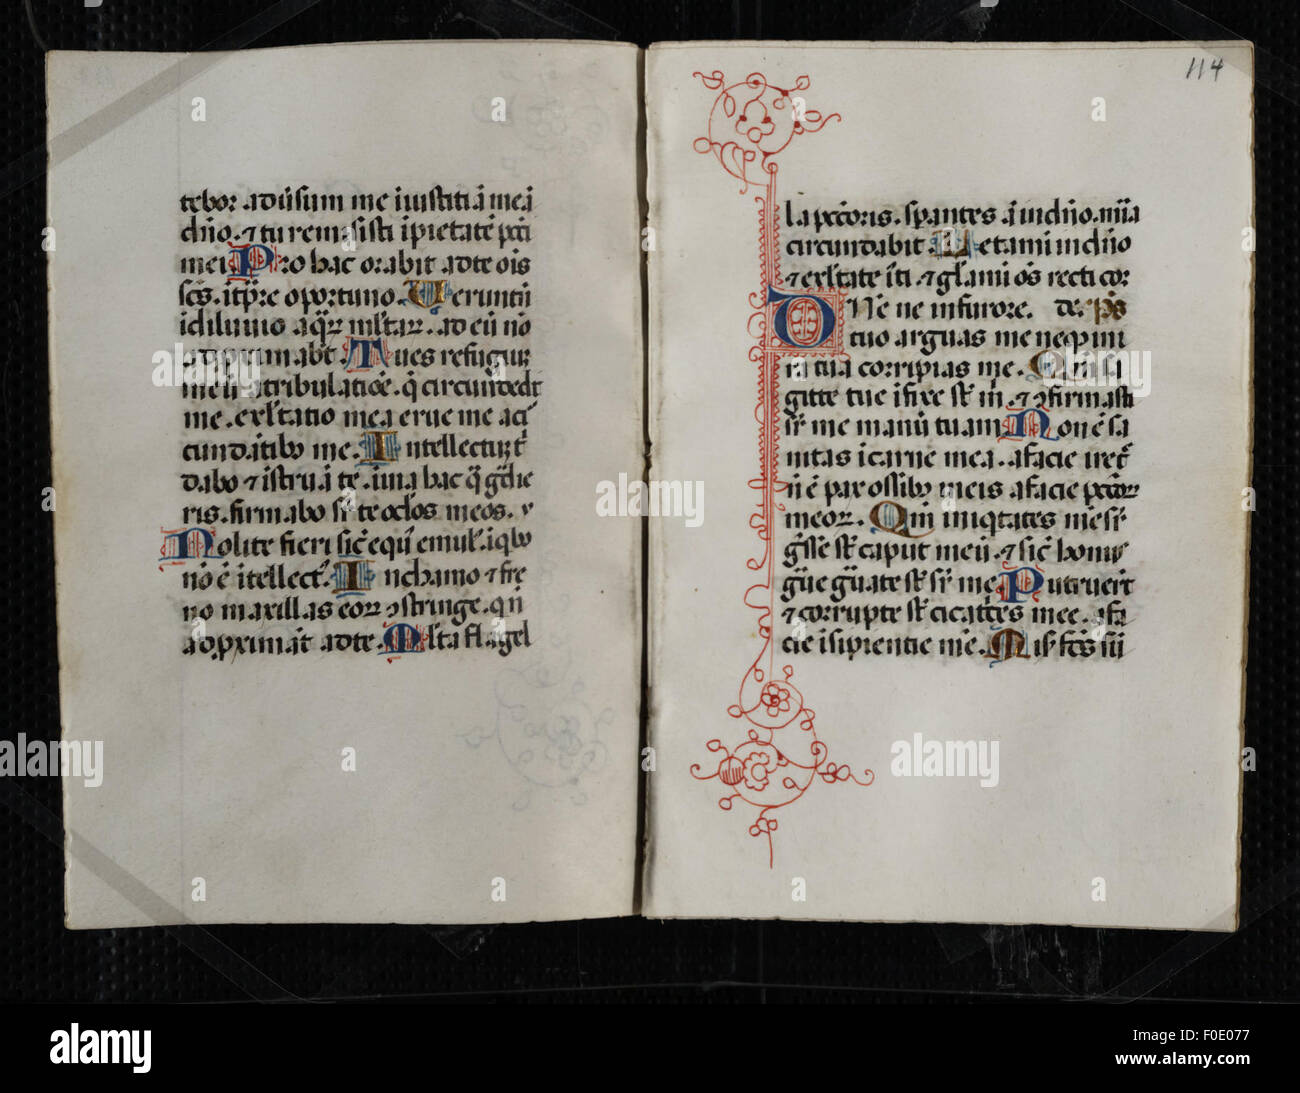 114
tebor aduersum me iniustitiā meā
dño. & tu remisisti ipietatē pcti
mei. Pro hac orabit ad te ois
scs. i tpre oportuno. Verūntn
i diluuio aqr mltar. ad eū nō
adproximabt. Tu es refugiū
meū a tribulatiōe. q circundedit
me. exltatio mea erue me a cir
cundātibo me. Intellectū t
dabo & istruā te. i uia hac q gdie
ris. firmabo sr te oclos meos.
Nolite fieri sic equs & mulus. i qbo
nō ē itellect. In chamo & fre
no maxillas eor cstringe. qn
adpximāt ad te. Mlta flagel
la pctoris. spantes ā in dño. mia
circundabit. Letamini in dño
& exltate iti. & glamī os recti cor
DNE ne in furore. de. ps
tuo arguas me neqz in i
ra tua corripias me. Qm sa
gitte tue ifixe st m. & cfirmasti
sr me manū tuam. Non ē sa
nitas i carne mea. a facie ire t
n ē pax ossibo meis a facie pctor
meor. Qm iniqtates mē sr
gsse st caput meū. & sic honus
gue guate st sr me. Putruerūt
& corrupte st cicatces mee. a fa
cie isipientie mē. Mis fcs sū
alamy
alamy
alamy
Image ID: F0E077
www.alamy.com